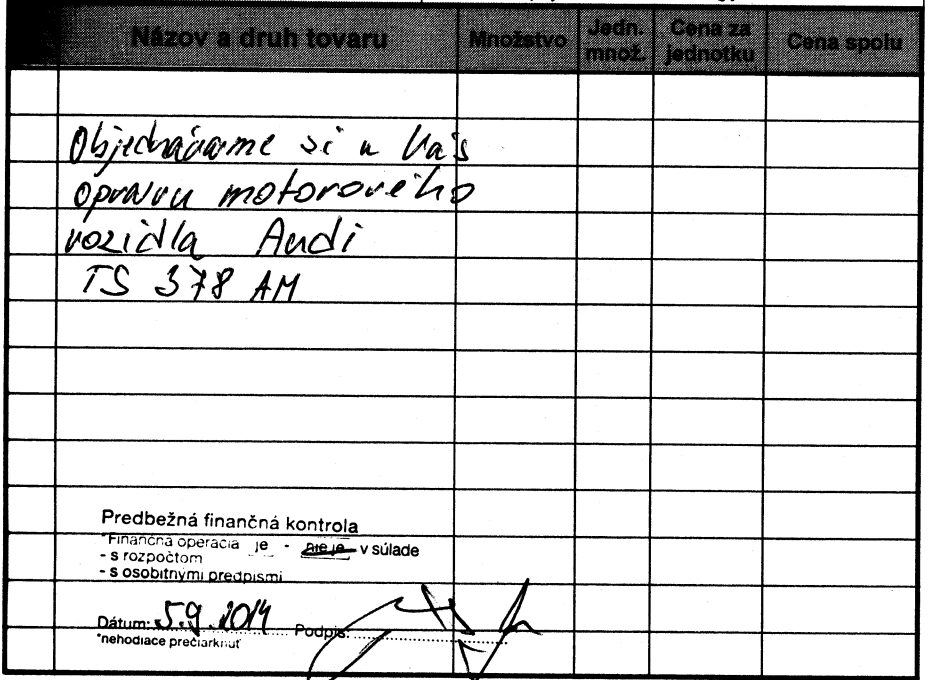 Názov a druh tovaru Množstvo Jedn. množ. Cena za jednotku Cena spolu
Objednávame si u Vás
opravu motorového
vozidla Audi
TS 378 AM
Predbežná finančná kontrola
*Finančná operácia je - nie je v súlade
- s rozpočtom
- s osobitnými predpismi
Dátum: 5.9.2014 Podpis:
*nehodiace prečiarknuť